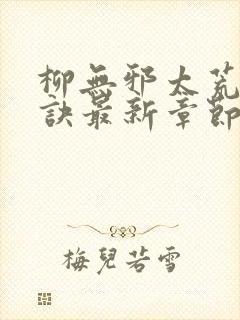 柳無邪太荒
訣最新章節
梅兒若雪